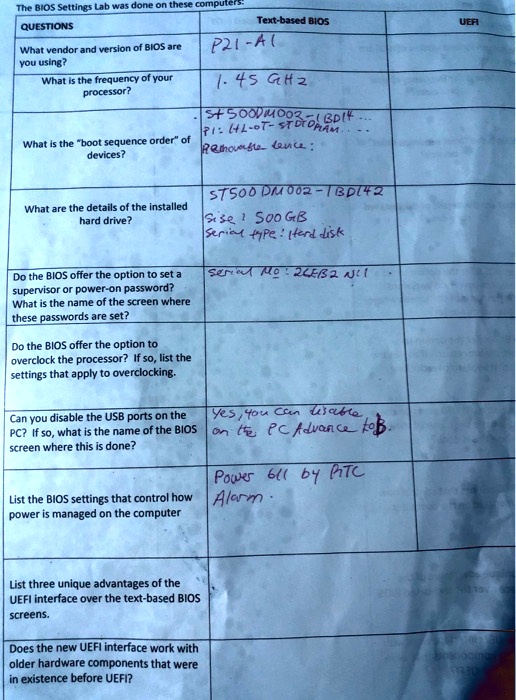 The BIOS Settings Lab was done on these computers:
QUESTIONS
Text-based BIOS
UEFI
What vendor and version of BIOS are
you using?
P21-A1
What is the frequency of your
processor?
1.45 GHz
What is the "boot sequence order" of
devices?
St500DM002-1BD14 ...
P1: HL-DT-ST
Removable device:
What are the details of the installed
hard drive?
ST500 DM002-1BD142
Size: 500GB
Serial type: Hard disk
Do the BIOS offer the option to set a
supervisor or power-on password?
What is the name of the screen where
these passwords are set?
Serial No:
Do the BIOS offer the option to
overclock the processor? If so, list the
settings that apply to overclocking.
Can you disable the USB ports on the
PC? If so, what is the name of the BIOS
screen where this is done?
Yes, you can disable
on the PC Advance tab.
List the BIOS settings that control how
power is managed on the computer
Power by RTC
Alarm.
List three unique advantages of the
UEFI interface over the text-based BIOS
screens.
Does the new UEFI interface work with
older hardware components that were
in existence before UEFI?